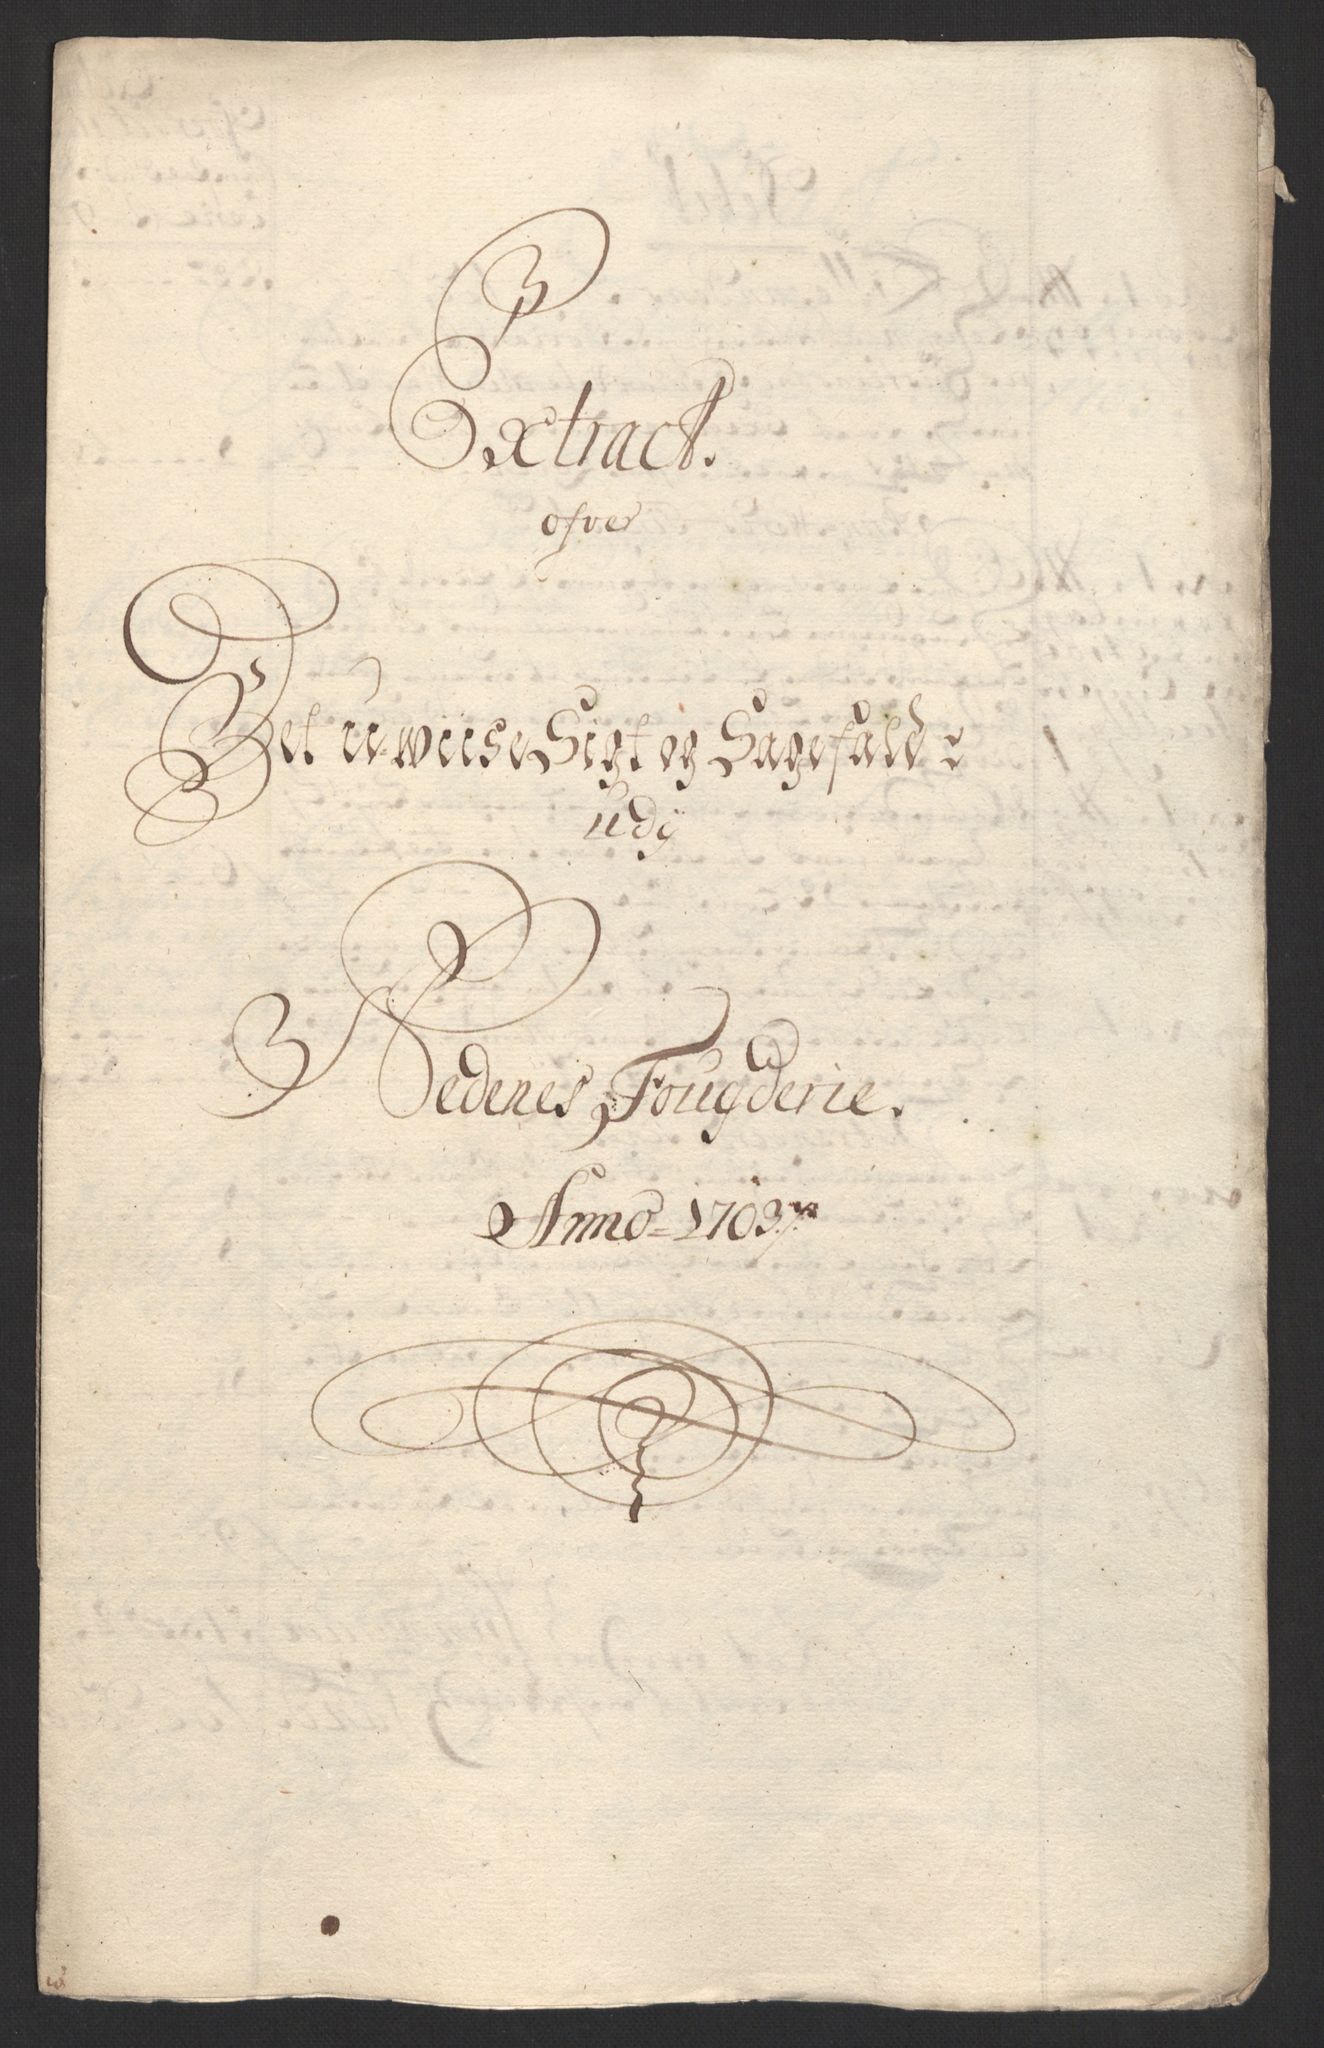 Extract.
ofver
Det u-wiise Sigt og Sagefald
udj
Nedenes Fougderie.
Anno 1703